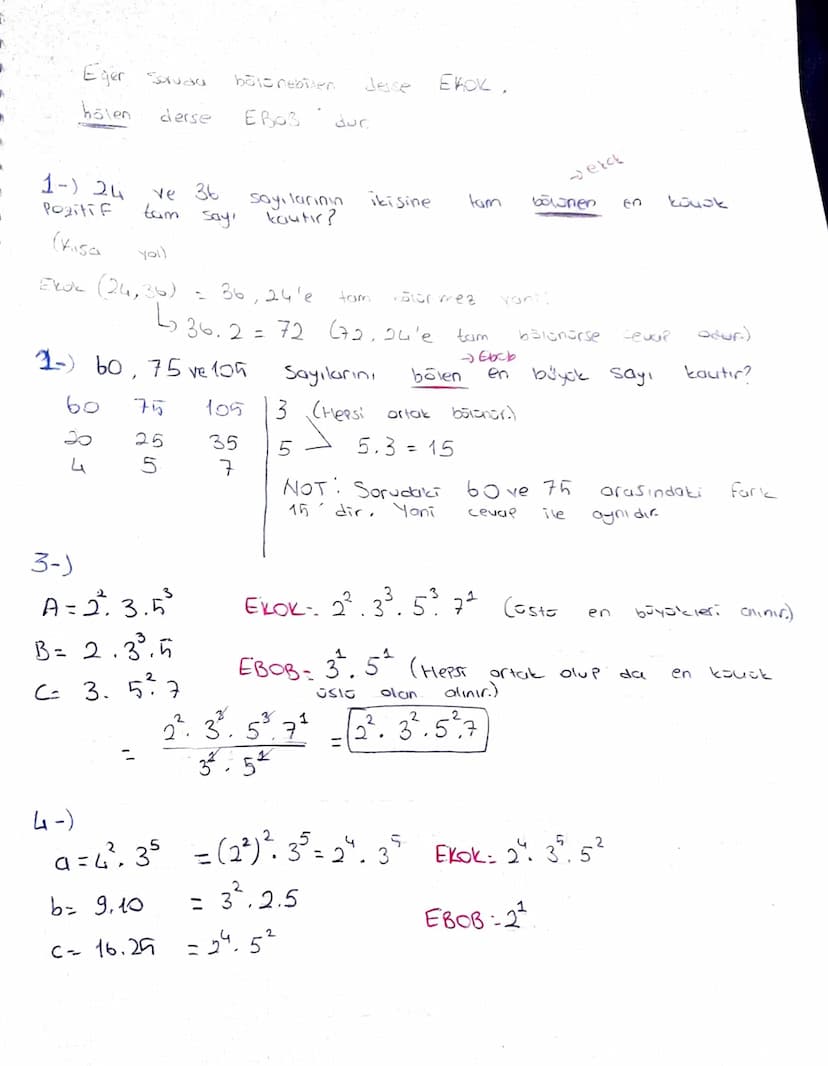 Eğer soruda bölünebilen derse EKOK,
bölen derse EBOB'dur
→ekok
1-) 24 ve 36 sayılarının ikisine tam bölünen en küçük
pozitif tam sayı kaçtır?
(Kısa yol)
Ekok (24,36) = 36, 24'e tam bölünmez yani
↳ 36.2 = 72 (72, 24'e tam bölünürse cevap odur.)
→Ebob
2-) 60, 75 ve 105 sayılarını bölen en büyük sayı kaçtır?
60 75 105 | 3 (Hepsi ortak bölünür.)
20 25 35 | 5 > 5.3 = 15
4 5 7
NOT: Sorudaki 60 ve 75 arasındaki fark
15'dir. Yani cevap ile aynıdır
3-)
A = 2². 3.5³ EKOK = 2². 3³. 5³. 7¹ (üstü en büyükleri alınır.)
B = 2 .3³.5
EBOB = 3¹. 5¹ (Hepsi ortak olup da en küçük
C = 3. 5². 7 üslü olan alınır.)
= 2². 3³. 5³. 7¹ / 3¹. 5¹ = 2². 3². 5².7
4-)
a = 4². 3⁵ = (2²)². 3⁵ = 2⁴. 3⁵ EKOK = 2⁴. 3⁵. 5²
b = 9.10 = 3². 2.5 EBOB = 2¹
c = 16.25 = 2⁴. 5²